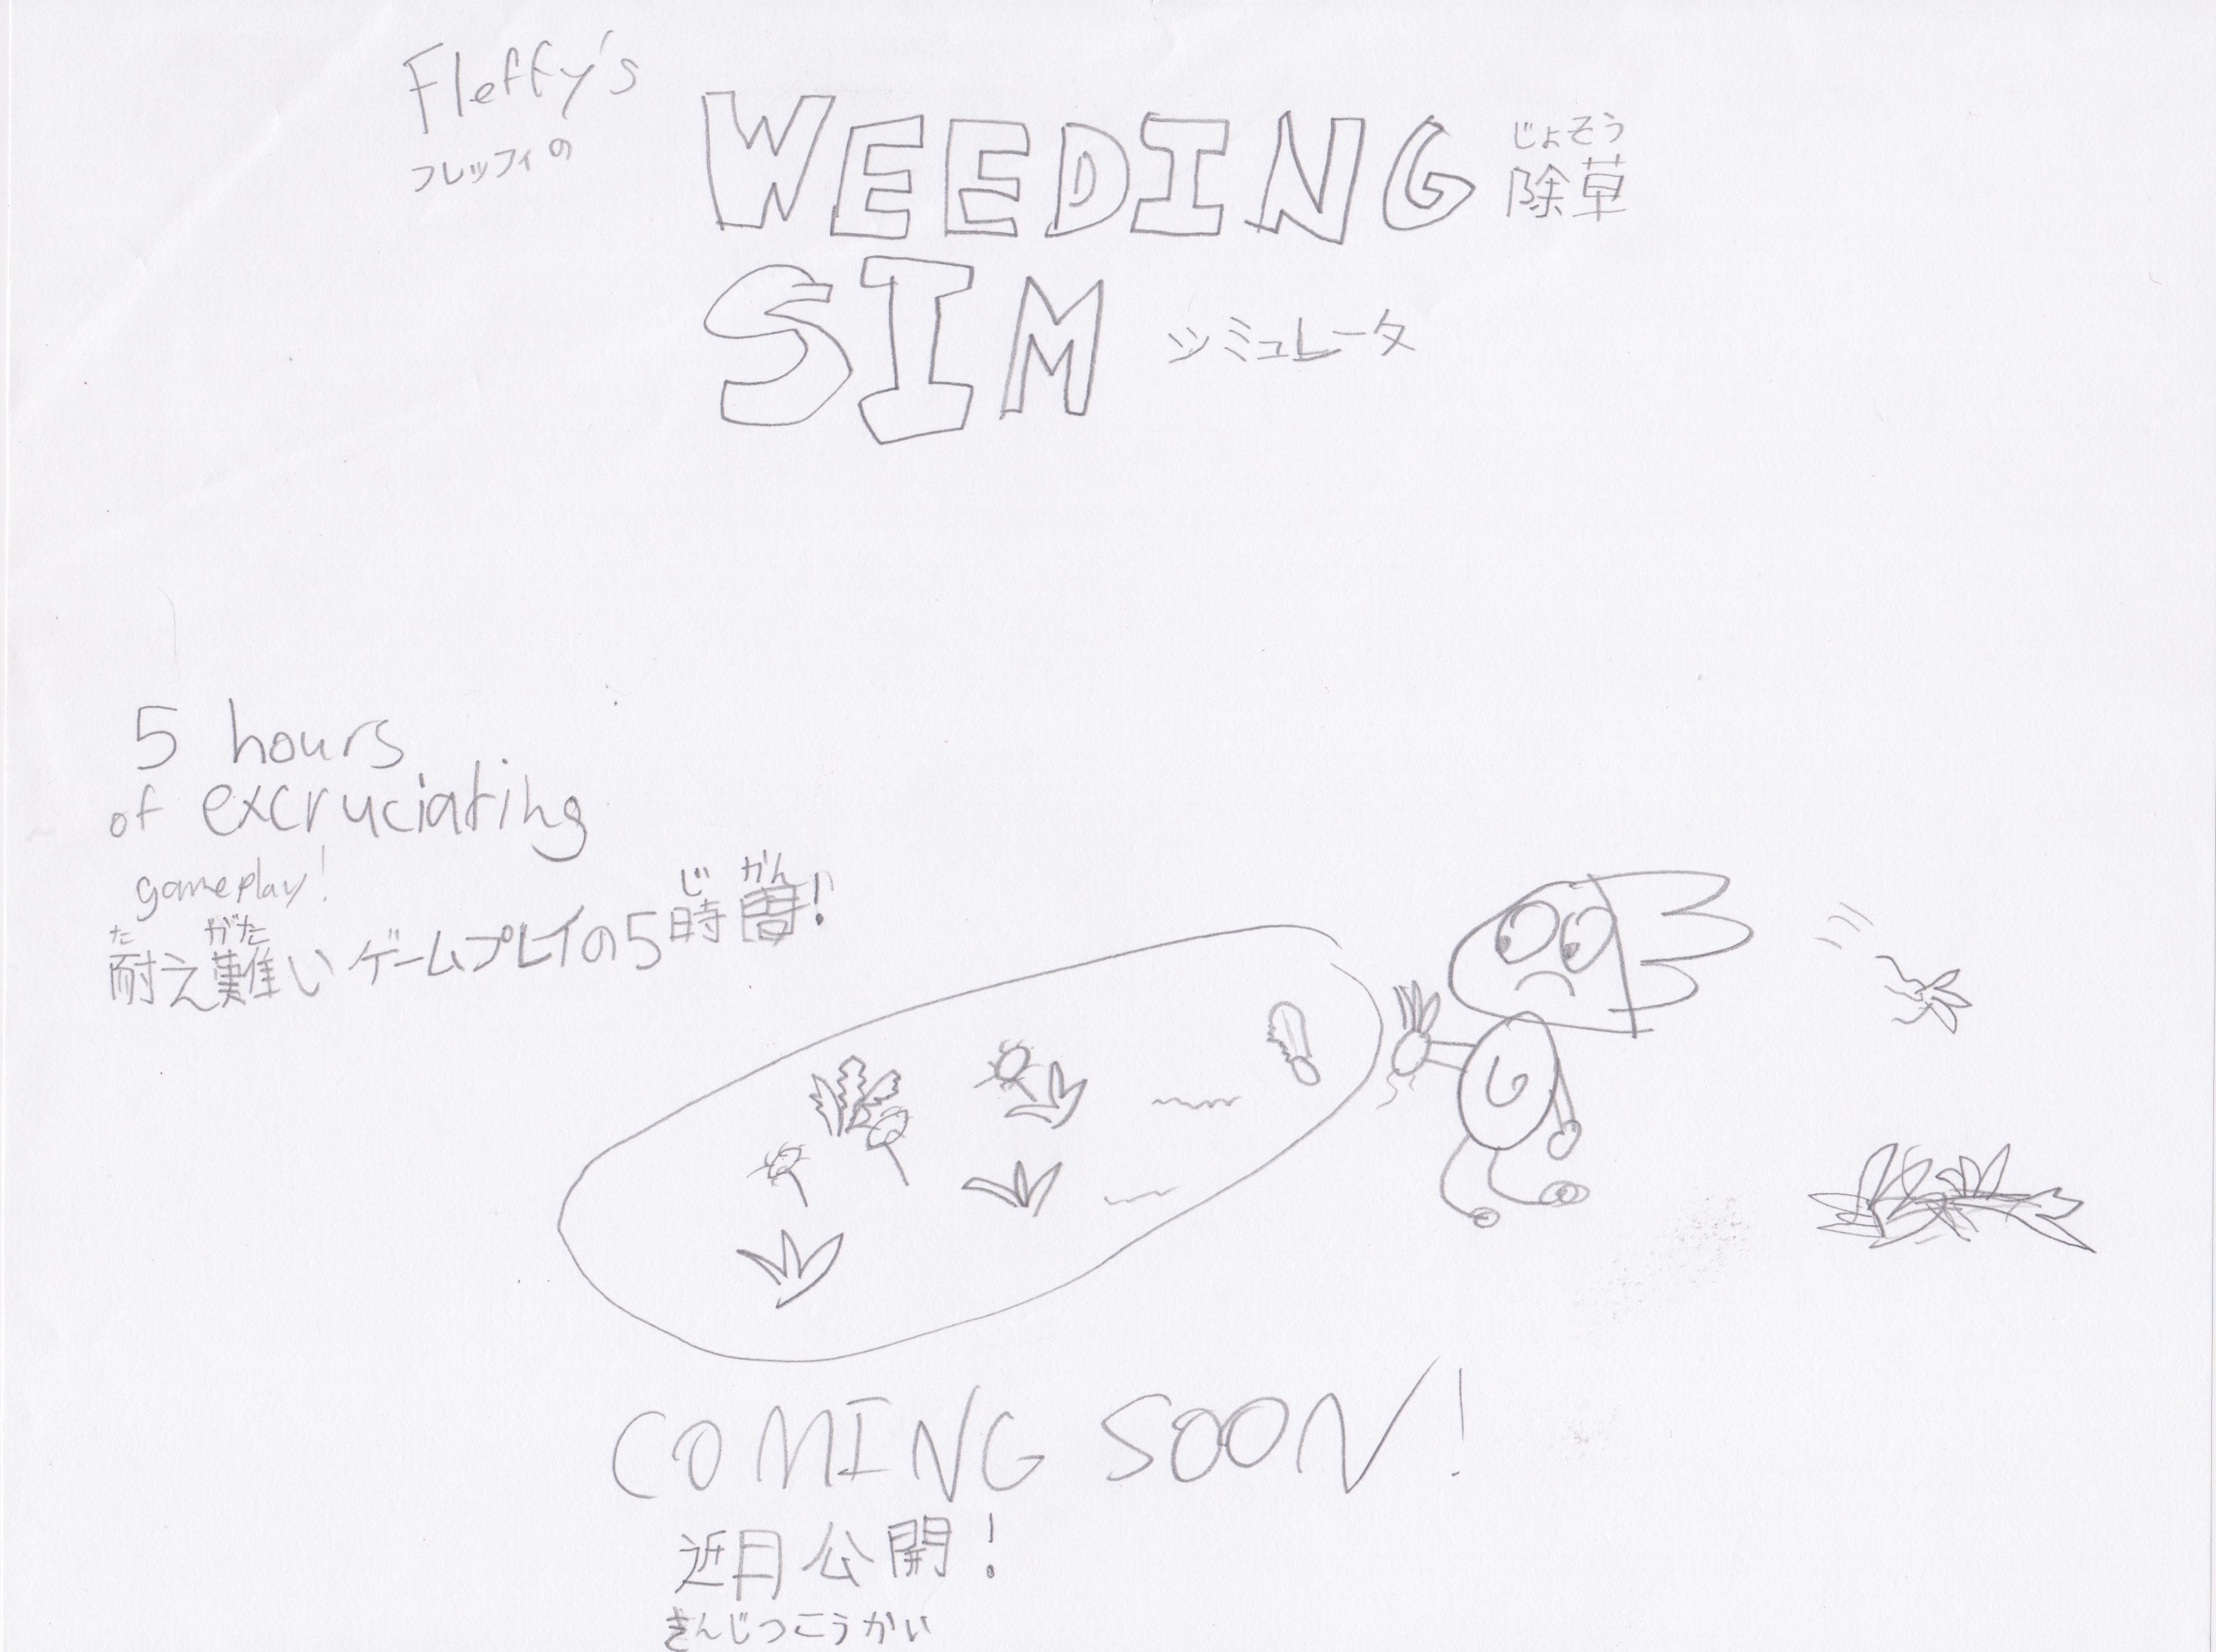 Fleffy's
フレッフィの
WEEDING
じょそう
除草
SIM
シミュレータ
5 hours
of excruciating
gameplay!
た がた じ かん
耐え難いゲームプレイの5時間!
COMING SOON!
近日公開!
きんじつこうかい